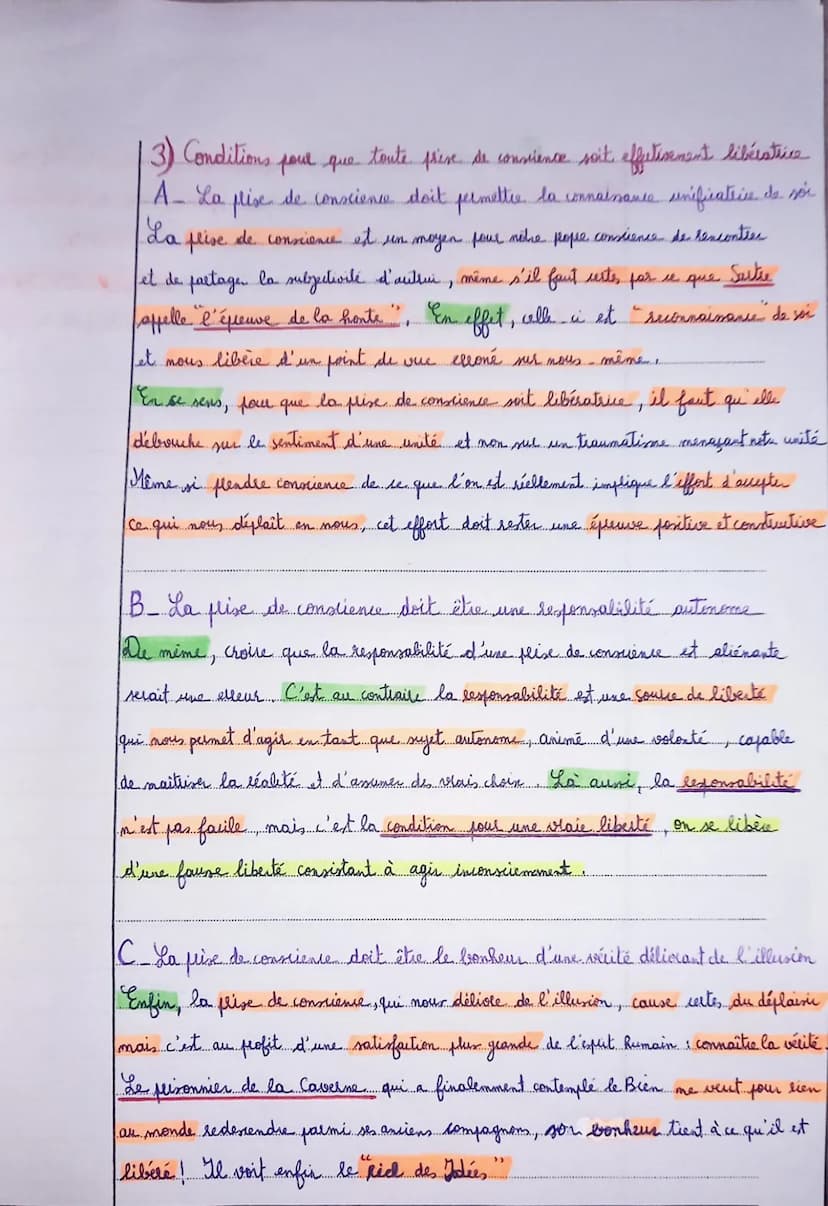 3) Conditions pour que toute prise de conscience soit effectivement libératrice
A_ La prise de conscience doit permettre la connaissance unificatrice de soi
La prise de conscience est un moyen pour nôtre propre conscience de rencontrer
et de partager la subjectivité d'autrui, même s'il faut certes, par ce que Sartre
appelle "l'épreuve de la honte". En effet, celle-ci est "reconnaissance" de soi
et nous libère d'un point de vue erroné sur nous-même.
En ce sens, pour que la prise de conscience soit libératrice, il faut qu'elle
débouche sur le sentiment d'une unité et non sur un traumatisme menaçant notre unité
Même si prendre conscience de ce que l'on est réellement implique l'effort d'accepter
ce qui nous déplaît en nous, cet effort doit rester une épreuve positive et constructive
B_ La prise de conscience doit être une responsabilité autonome
De même, croire que la responsabilité d'une prise de conscience est aliénante
serait une erreur. C'est au contraire la responsabilité est une source de liberté
qui nous permet d'agir en tant que sujet autonome, animé d'une volonté, capable
de maitriser la réalité et d'assumer des vrais choix. Là aussi, la responsabilité
n'est pas facile, mais c'est la condition pour une vraie liberté, on se libère
d'une fausse liberté consistant à agir inconsciemment.
C_ La prise de conscience doit être le bonheur d'une vérité délivrant de l'illusion
Enfin, la prise de conscience, qui nous délivre de l'illusion, cause certes, du déplaisir
mais c'est au profit d'une satisfaction plus grande de l'esprit Humain : connaître la vérité.
Le prisonnier de la Caverne qui a finalemment contemplé le Bien ne veut pour rien
au monde redescendre parmi ses anciens compagnons, son bonheur tient à ce qu'il est
libéré ! Il voit enfin le "ciel des Idées"